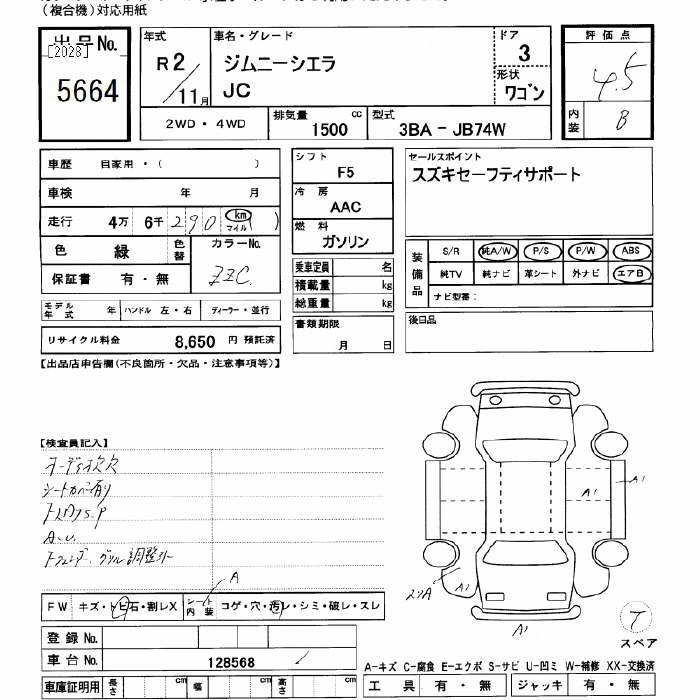 (複合機)対応用紙
出品No.
[2028]
5664
年式
R2/11月
車名・グレード
ジムニーシエラ
JC
ドア
3
形状
ワゴン
評価点
4.5
内装
B
2WD・4WD
排気量
1500
cc
型式
3BA - JB74W
車歴 自家用・( )
車検 年 月
走行 4万 6千 290 km マイル ( )
色 緑 色替 カラーNo. ZZC
保証書 有・無
モデル年式 年 ハンドル 左・右 ディーラー・並行
リサイクル料金 8,650 円 預託済
シフト
F5
冷房
AAC
燃料
ガソリン
乗車定員 名
積載量 kg
総重量 kg
書類期限
月 日
セールスポイント
スズキセーフティサポート
装備品
S/R 純A/W P/S P/W ABS
純TV 純ナビ 革シート 外ナビ エアB
ナビ型番:
後日品
【出品店申告欄(不良箇所・欠品・注意事項等)】
【検査員記入】
オーディオ欠
シートカバー有り
A.U.
A
FW キズ・トビ石・割レX シート内装 コゲ・穴・汚レ・シミ・破レ・スレ
登録No.
車台No. 128568
車庫証明用 長さ cm 幅 cm 高さ cm
A1
A1
A1
T
スペア
A-キズ C-腐食 E-エクボ S-サビ U-凹ミ W-補修 XX-交換済
工具 有・無 ジャッキ 有・無